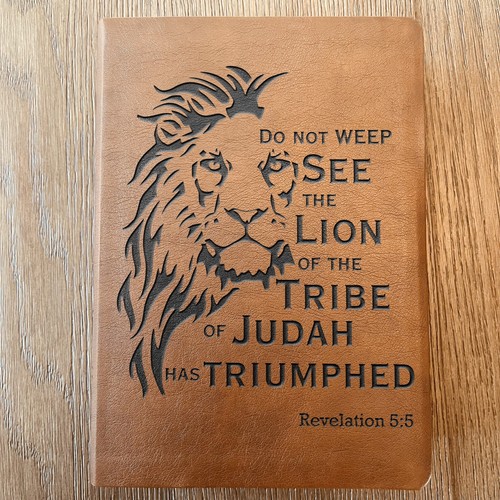 Do not weep
See
the
Lion
of the
Tribe
of Judah
has triumphed
Revelation 5:5